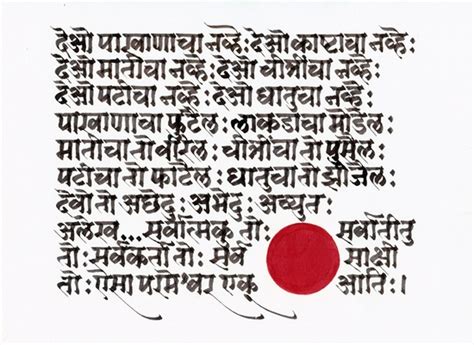 देओ पाखाणाचा नव्हे: देओ काष्टाचा नव्हे:
देओ मातीचा नव्हे: देओ चीत्रीचा नव्हे:
देओ पटीचा नव्हे: देओ धातुचा नव्हे:
पाखाणाचा फुटैल: लाकडाचा मोडैल:
मातीचा तो वीरैल: चीत्रीचा तो पुसैल:
पटीचा तो फाटैल: धातुचा तो झीजैल:
देवो तो अछेदु: अभेदु: अच्युत:
अलेख... सर्वात्मक तो: सर्वातीतु
तो: सर्वकर्ता तो: सर्व साक्षी
तो: ऐसा परमेश्वर एक् आति:।